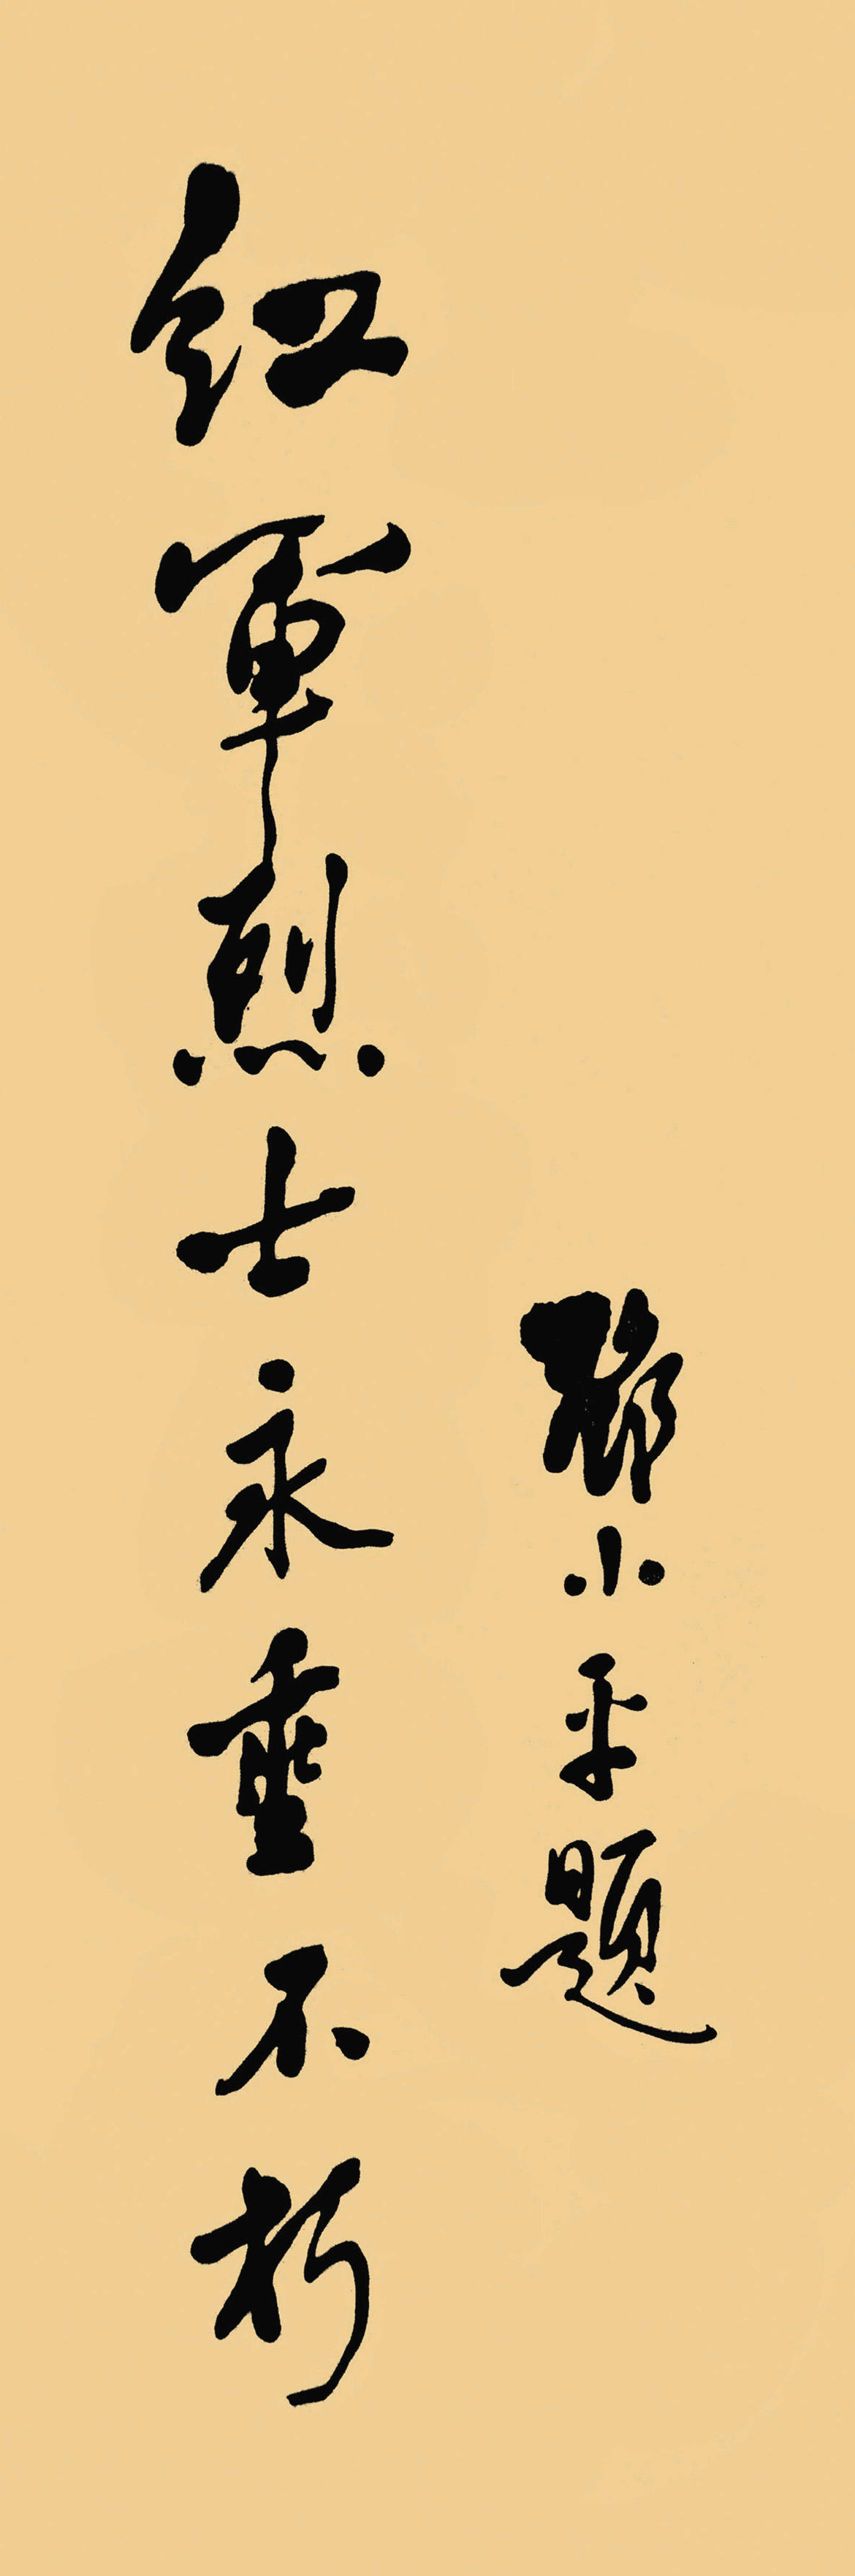 红军烈士永垂不朽
邓小平题